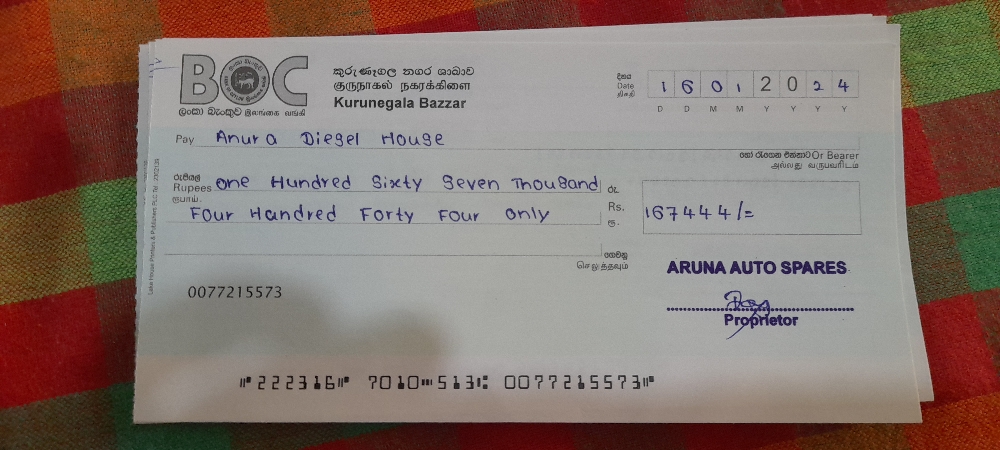 BOC
ලංකා බැංකුව இலங்கை வங்கி
කුරුණෑගල නගර ශාඛාව
குருநாகல் நகரக்கிளை
Kurunegala Bazzar
දිනය
Date
திகதி
1 6 0 1 2 0 2 4
D D M M Y Y Y Y
Pay Anura Diesel House
හෝ රැගෙන එන්නාට Or Bearer
அல்லது வருபவரிடம்
රුපියල්
Rupees One Hundred Sixty Seven Thousand
ரூபாய்.
Four Handred Forty Four only
රු.
Rs. 167444/=
ரூ.
ගෙවනු
செலுத்தவும்
ARUNA AUTO SPARES
0077215573
Proprietor
Lake House Printers & Publishers PLC
⑈222316⑈ 7010⑉513⑆ 0077215573⑈